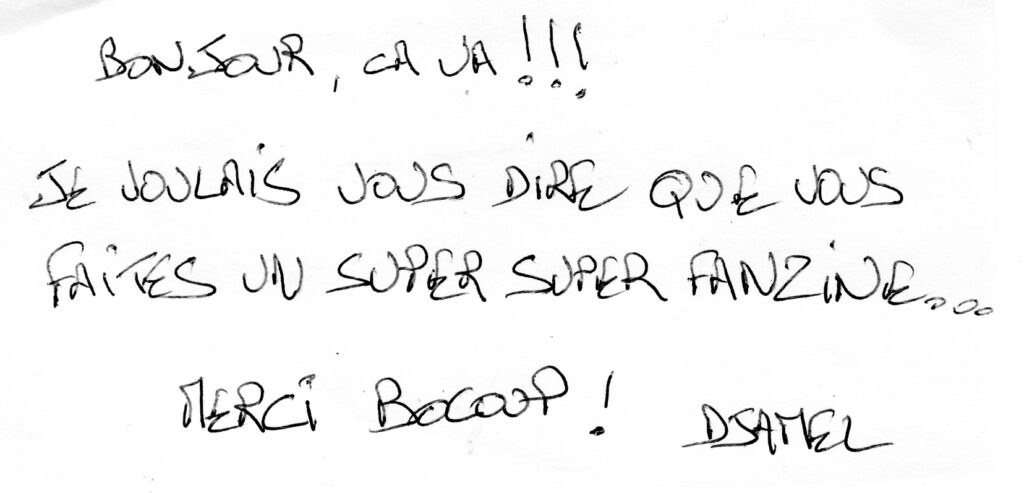 BONJOUR, CA VA !!!
JE VOULAIS VOUS DIRE QUE VOUS
FAITES UN SUPER SUPER FANZINE...
MERCI BOCOUP !
DJAMEL